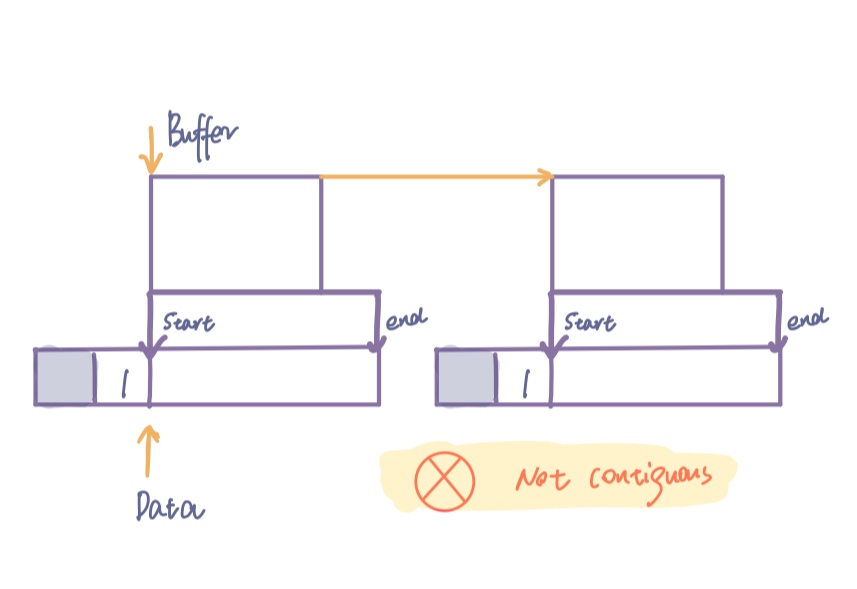 Buffer
Start
end
Start
end
1
1
Data
Not contiguous